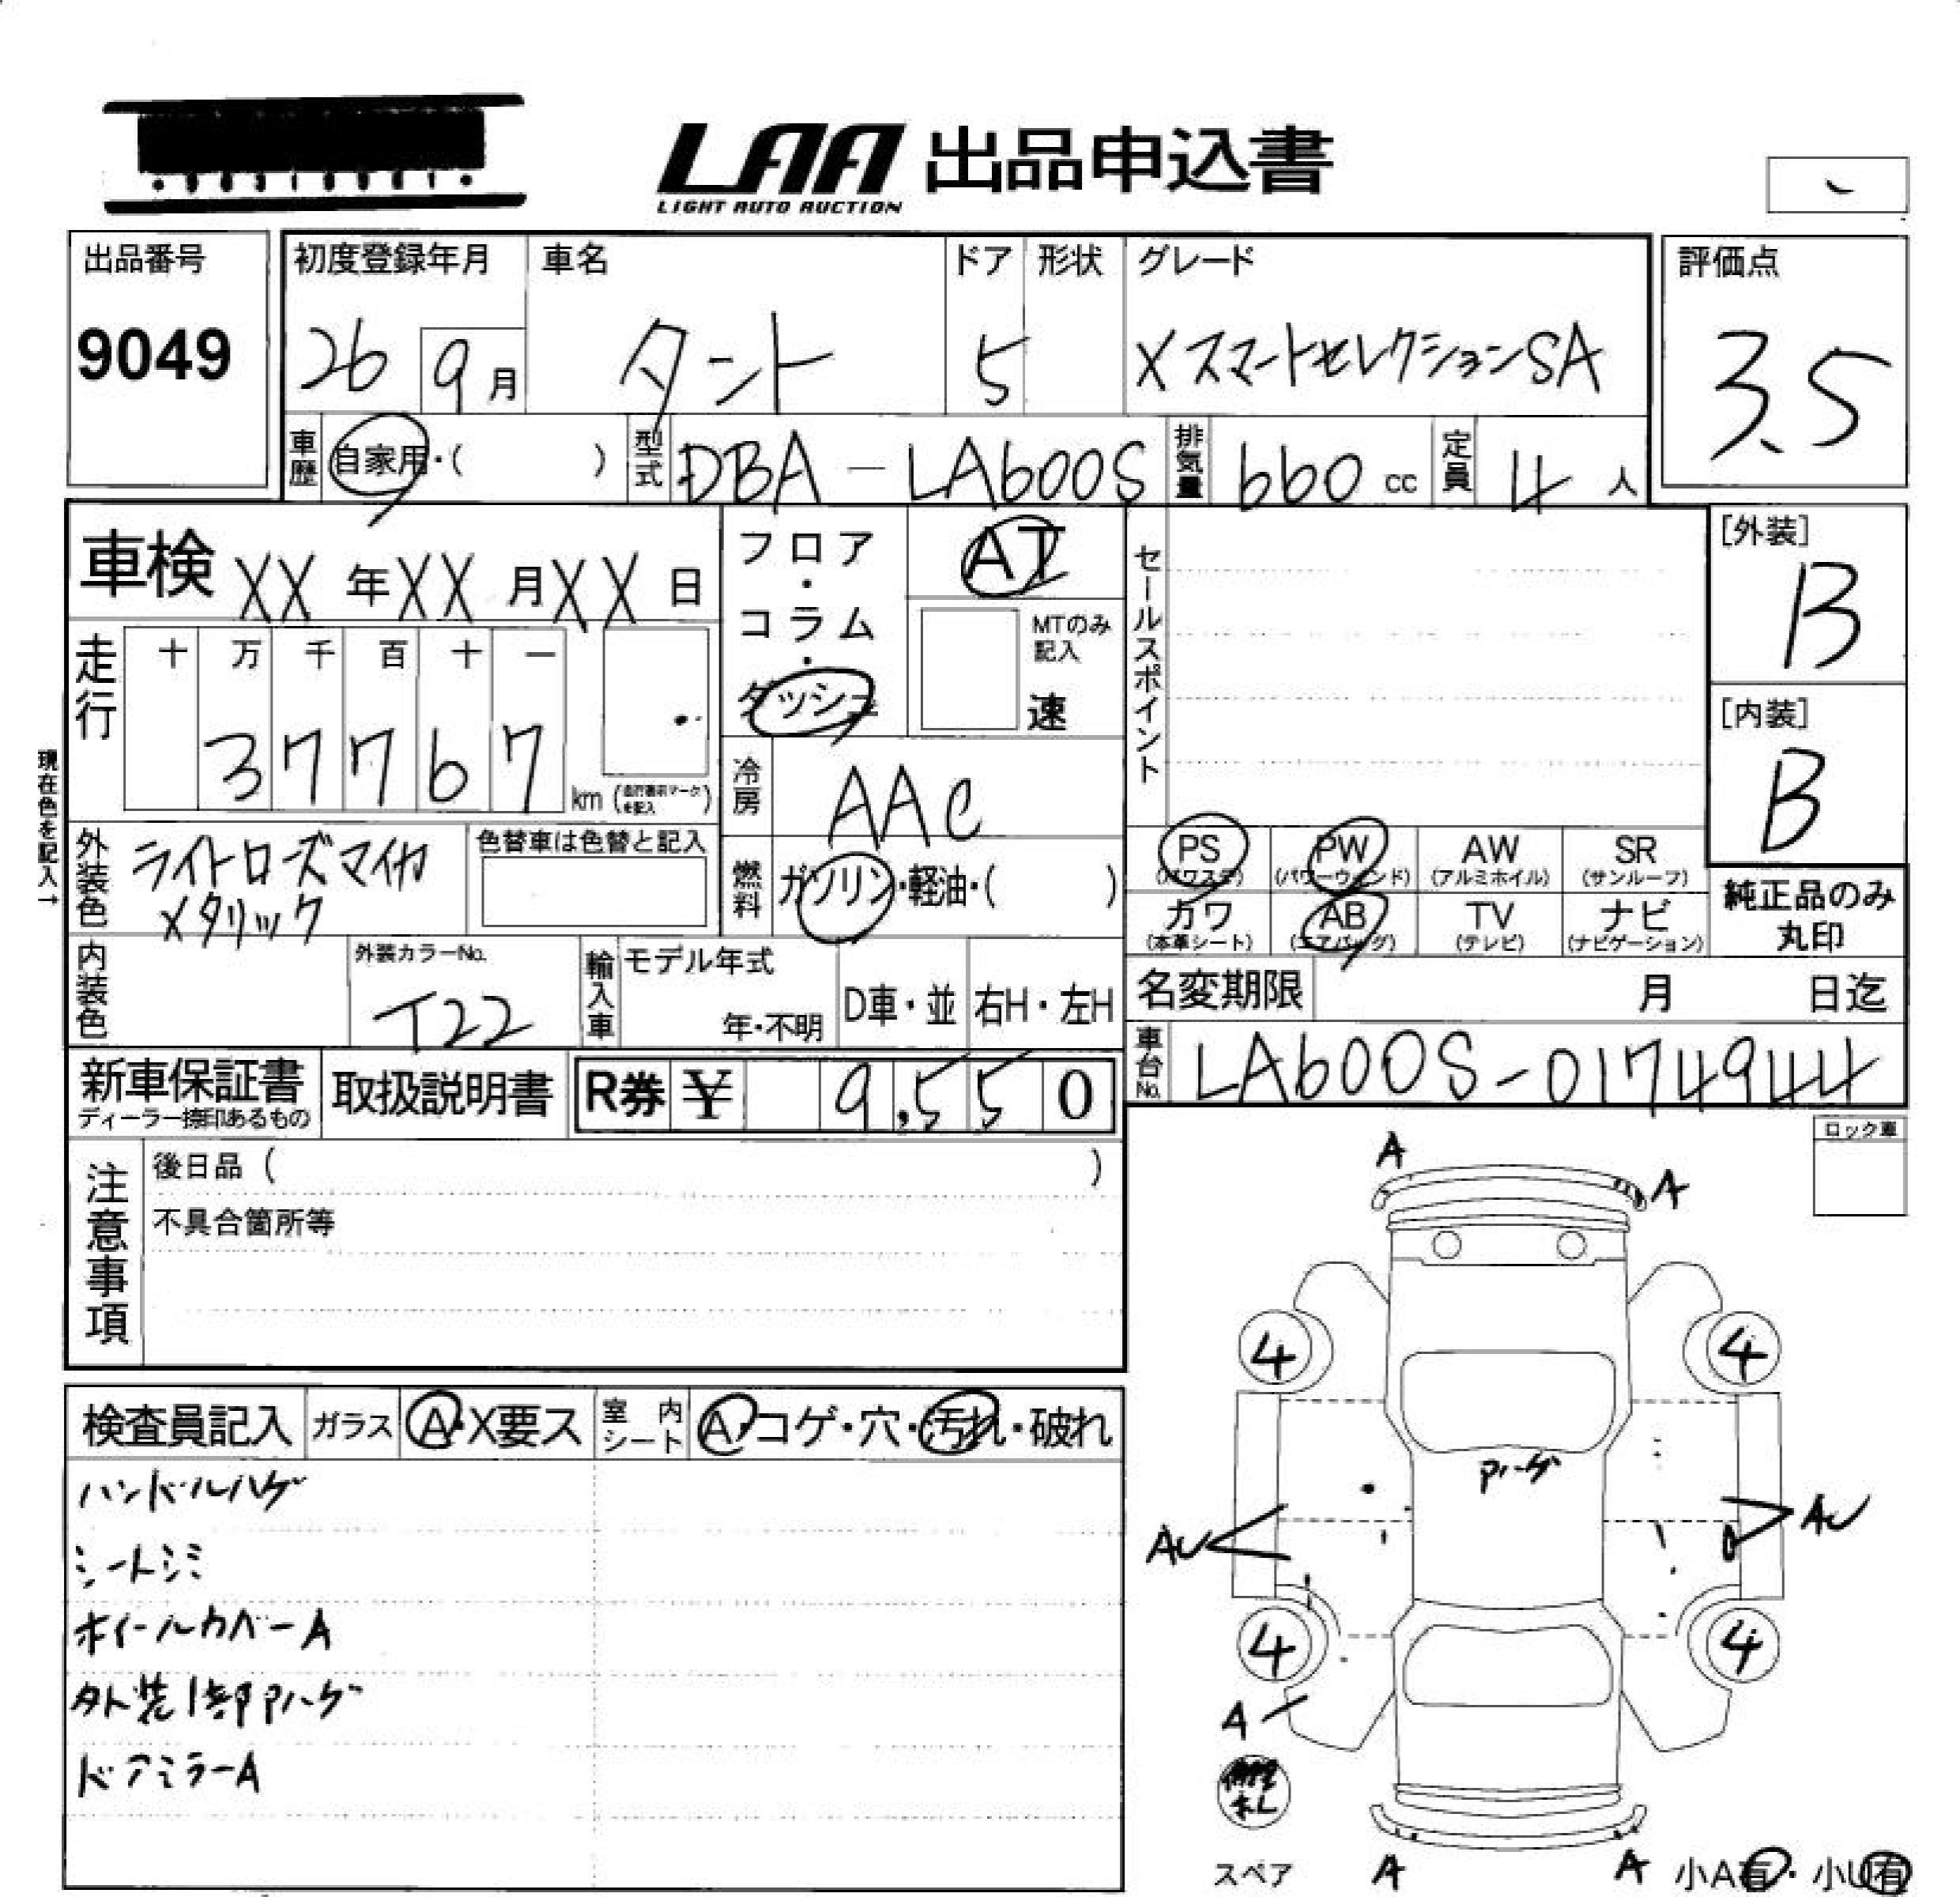 LAA 出品申込書
LIGHT AUTO AUCTION
出品番号
9049
初度登録年月
26 9月
車名
タント
ドア
5
形状
グレード
XスマートセレクションSA
評価点
3.5
車歴 自家用・( )
型式 DBA-LA600S
排気量 660 cc
定員 4 人
車検 XX 年 XX 月 XX 日
フロア・コラム・ダッシュ
AT
MTのみ記入
速
セールスポイント
[外装]
B
[内装]
B
走行
十 万 千 百 十 一
37767
km (走行表示マークを記入)
冷房 AAC
現在色を記入→
外装色 ライトローズマイカ
メタリック
色替車は色替と記入
燃料 ガソリン・軽油・( )
PS (パワステ)
PW (パワーウィンド)
AW (アルミホイル)
SR (サンルーフ)
カワ (本革シート)
AB (エアバッグ)
TV (テレビ)
ナビ (ナビゲーション)
純正品のみ
丸印
内装色
外装カラーNo.
T22
輸入車
モデル年式
年・不明
D車・並
右H・左H
名変期限 月 日迄
車台No. LA600S-0174944
新車保証書
ディーラー捺印あるもの
取扱説明書
R券 ¥ 9,550
ロック車
注意事項
後日品 ( )
不具合箇所等
検査員記入
ガラス A・X要ス
室内シート A・コゲ・穴・汚れ・破れ
ハンドルハゲ
シートシミ
ホイールカバーA
外装1部Pハゲ
ドアミラーA
A
A
4
4
Pハゲ
AU
AU
4
4
A
スペア
A
A
小A有・小U有